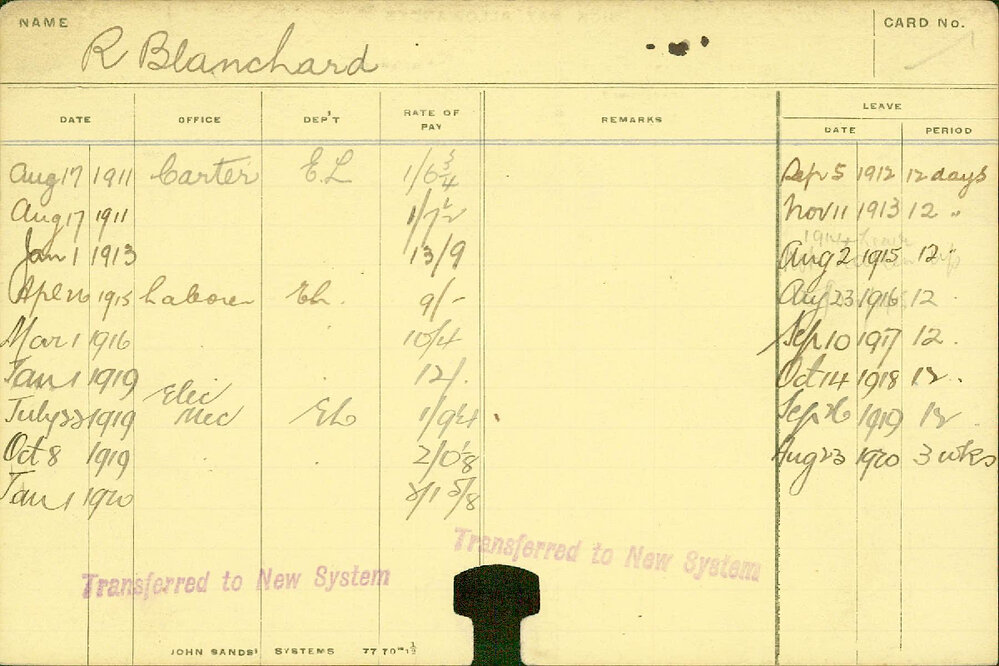 NAME
CARD No.
R Blanchard
DATE OFFICE DEP'T RATE OF PAY REMARKS LEAVE
DATE PERIOD
Aug 17 1911 Carter E.L 1/6 3/4 Sep 5 1912 12 days
Aug 17 1911 1/7 1/2 Nov 11 1913 12 "
1914 Leave
Jan 1 1913 13/9 Aug 2 1915 12 "
Apl 26 1915 Laborer EL. 9/- Aug 23 1916 12 "
Mar 1 1916 10/4 Sep 10 1917 12 .
Jan 1 1919 12/. Oct 14 1918 12 .
Elec
July 22 1919 Mec EL 1/9 Sep 26 1919 12 .
Oct 8 1919 2/0 1/8 Aug 23 1920 3 wks
Jan 1 1920 2/1 5/8
Transferred to New System
Transferred to New System
JOHN SANDS' SYSTEMS